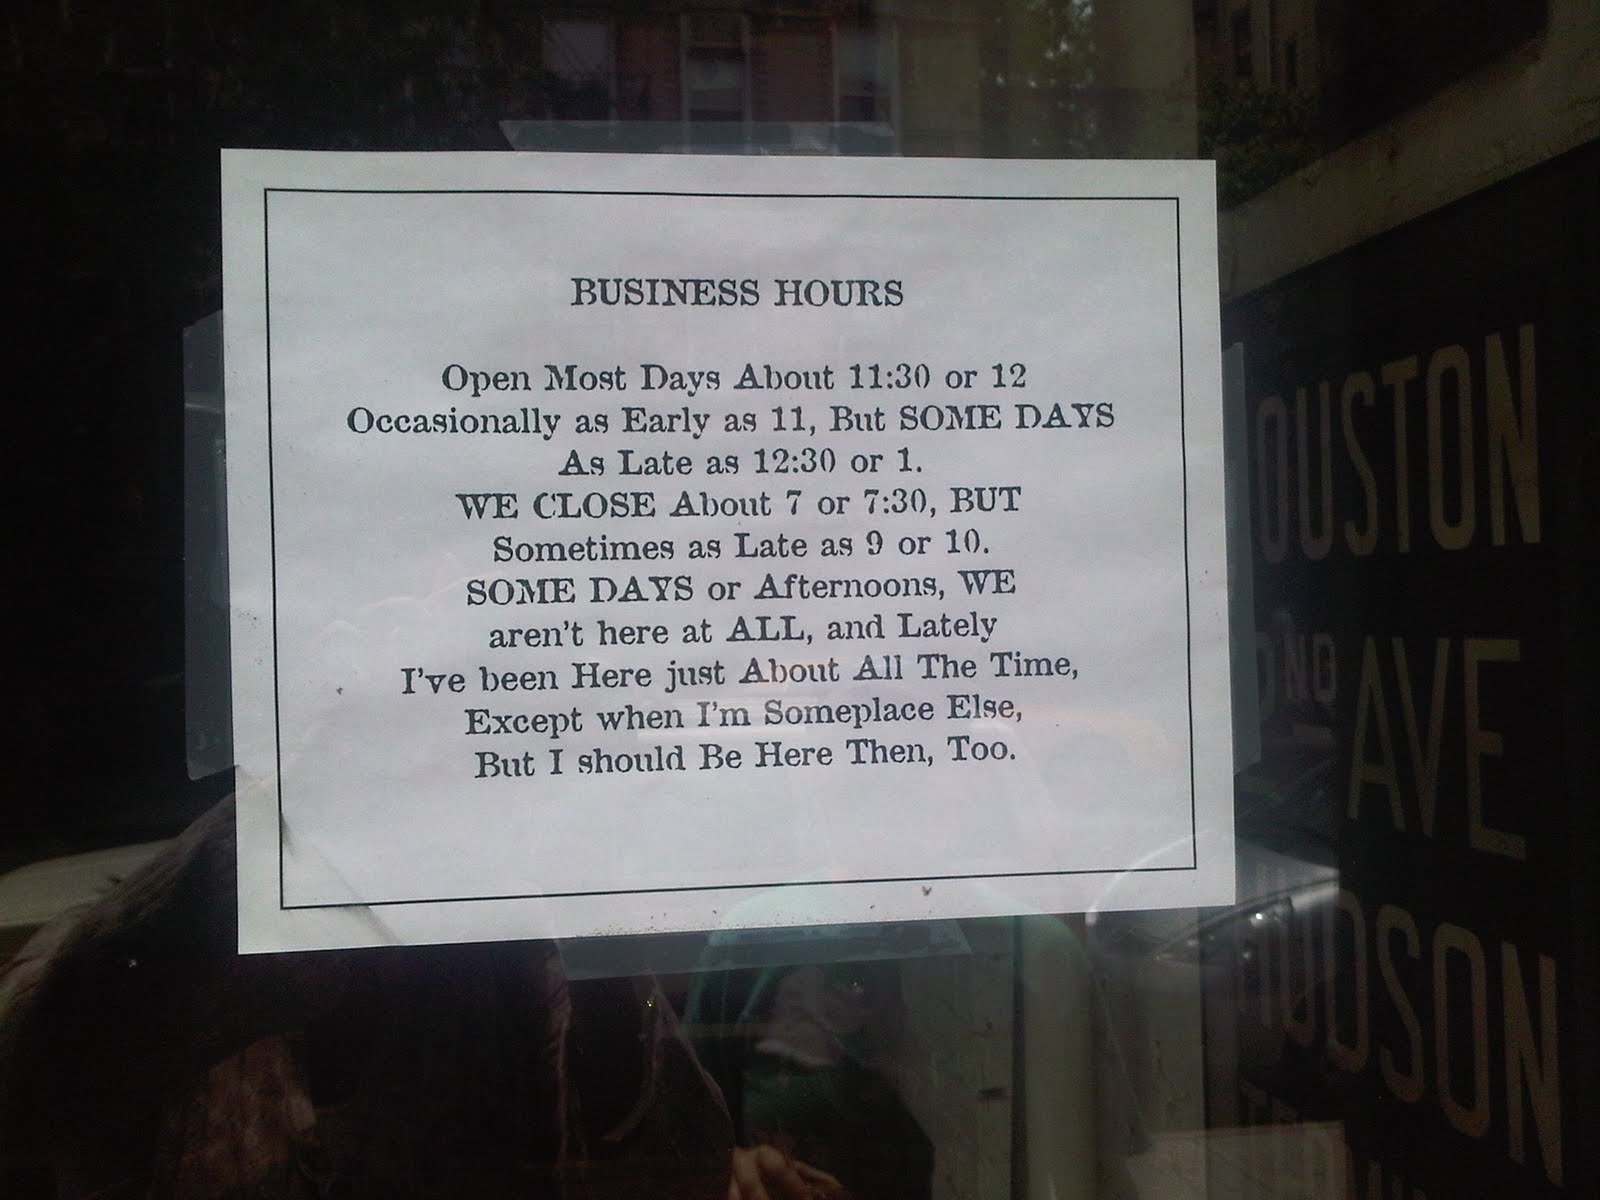 BUSINESS HOURS
Open Most Days About 11:30 or 12
Occasionally as Early as 11, But SOME DAYS
As Late as 12:30 or 1.
WE CLOSE About 7 or 7:30, BUT
Sometimes as Late as 9 or 10.
SOME DAYS or Afternoons, WE
aren't here at ALL, and Lately
I've been Here just About All The Time,
Except when I'm Someplace Else,
But I should Be Here Then, Too.
OUSTON
AVE
HUDSON